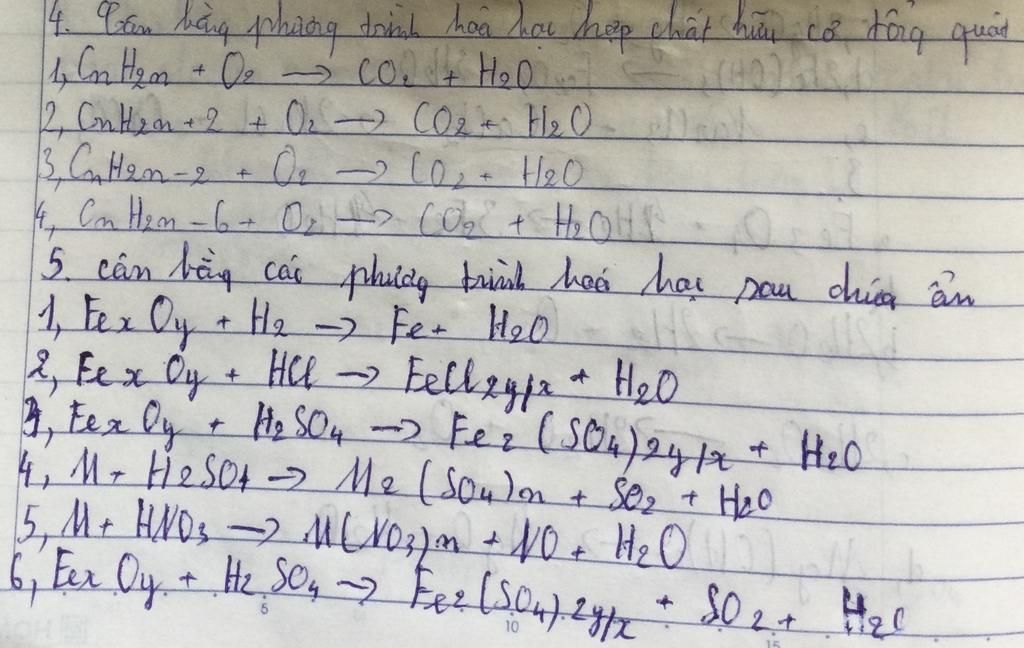 4. Cân bằng phương trình hoá học hợp chất hữu cơ tổng quát
1, CnH2n + O2 → CO2 + H2O
2, CnH2n+2 + O2 → CO2 + H2O
3, CnH2n-2 + O2 → CO2 + H2O
4, CnH2n-6 + O2 → CO2 + H2O
5. cân bằng các phương trình hoá học sau chứa ẩn
1, FexOy + H2 → Fe + H2O
2, FexOy + HCl → FeCl2y/x + H2O
3, FexOy + H2SO4 → Fe2(SO4)2y/x + H2O
4, M + H2SO4 → M2(SO4)n + SO2 + H2O
5, M + HNO3 → M(NO3)n + NO + H2O
6, FexOy + H2SO4 → Fe2(SO4)2y/x + SO2 + H2O
5
10
15